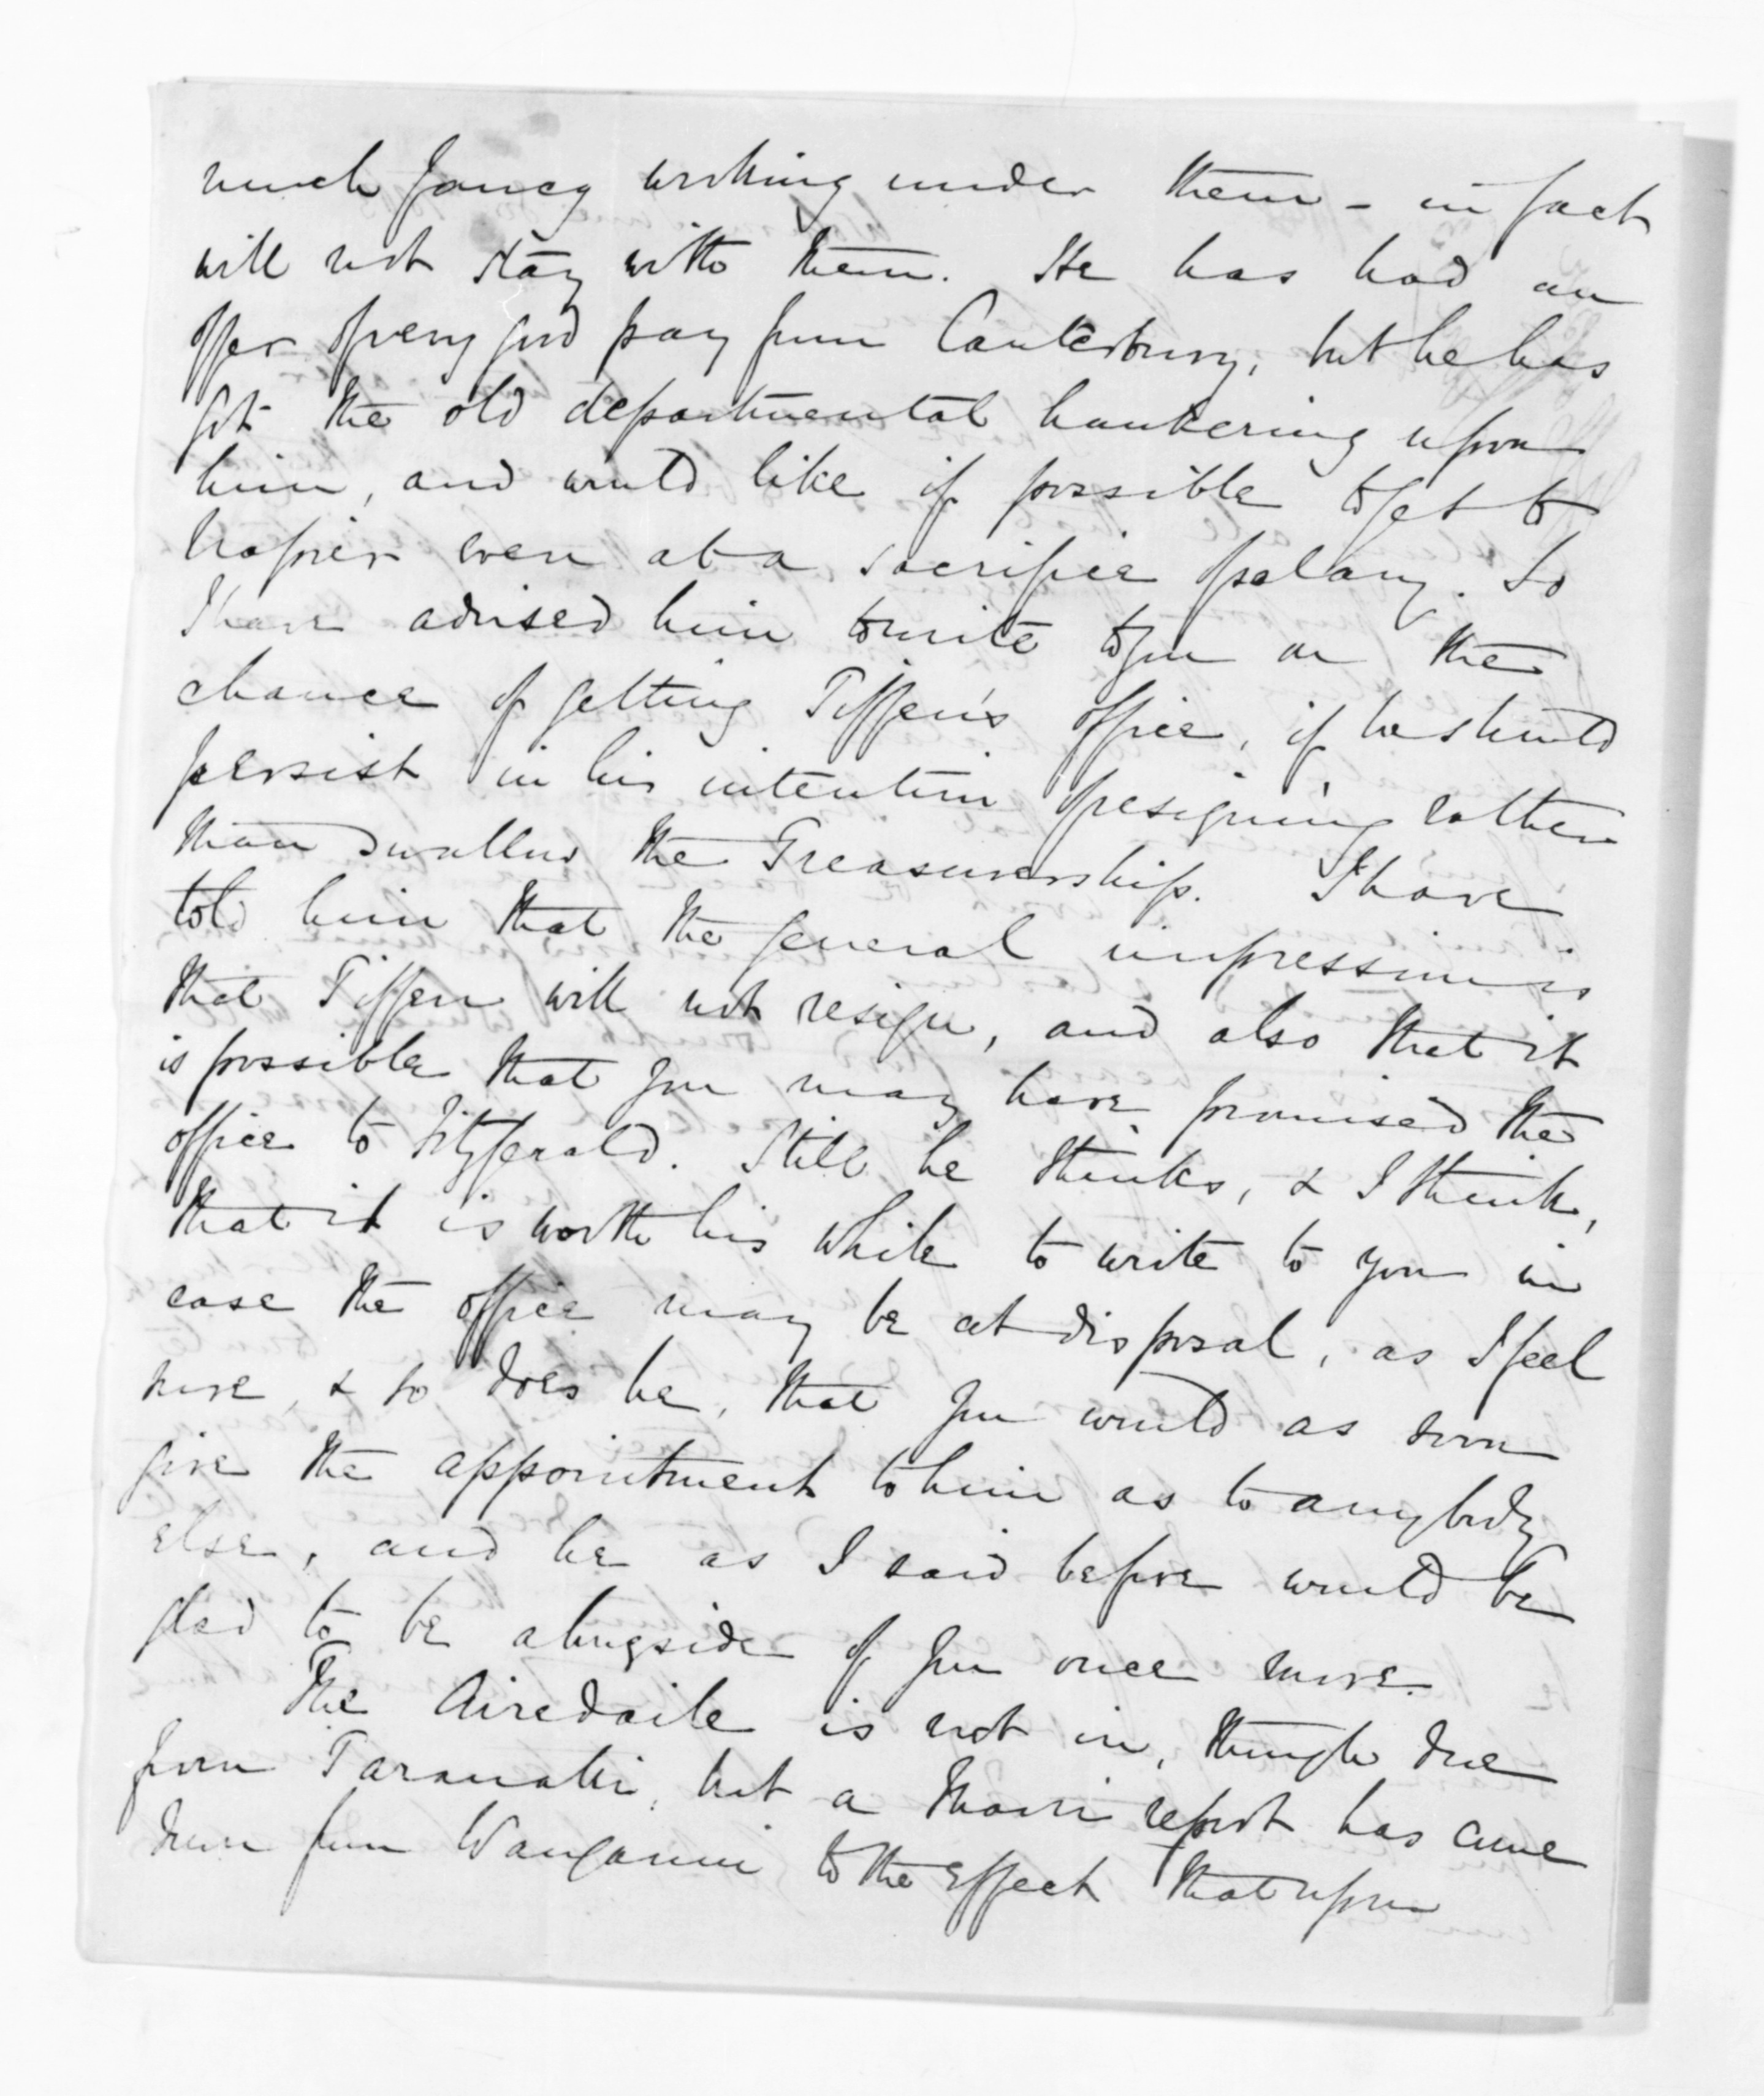 much fancy working under them - in fact
will not stay with them. He has had an
offer of very good pay from Canterbury, but he has
got the old departmental hankering upon
him, and would like if possible to get to
Napier even at a sacrifice of salary. So
I have advised him to write to you on the
chance of getting Tiffen's office, if he should
persist in his intention of resigning rather
than swallow the Treasurership. I have
told him that the general impression is
that Tiffen will not resign, and also that it
is possible that you may have promised the
office to Fitzgerald. Still he thinks, & I think,
that it is worth his while to write to you in
case the office may be at disposal, as I feel
sure, & so does he, that you would as soon
give the appointment to him as to anybody
else, and he as I said before would be
glad to be alongside of you once more.
The Airedaile is not in, though due
from Taranaki, but a Maori report has come
down from Wanganui to the effect that upon